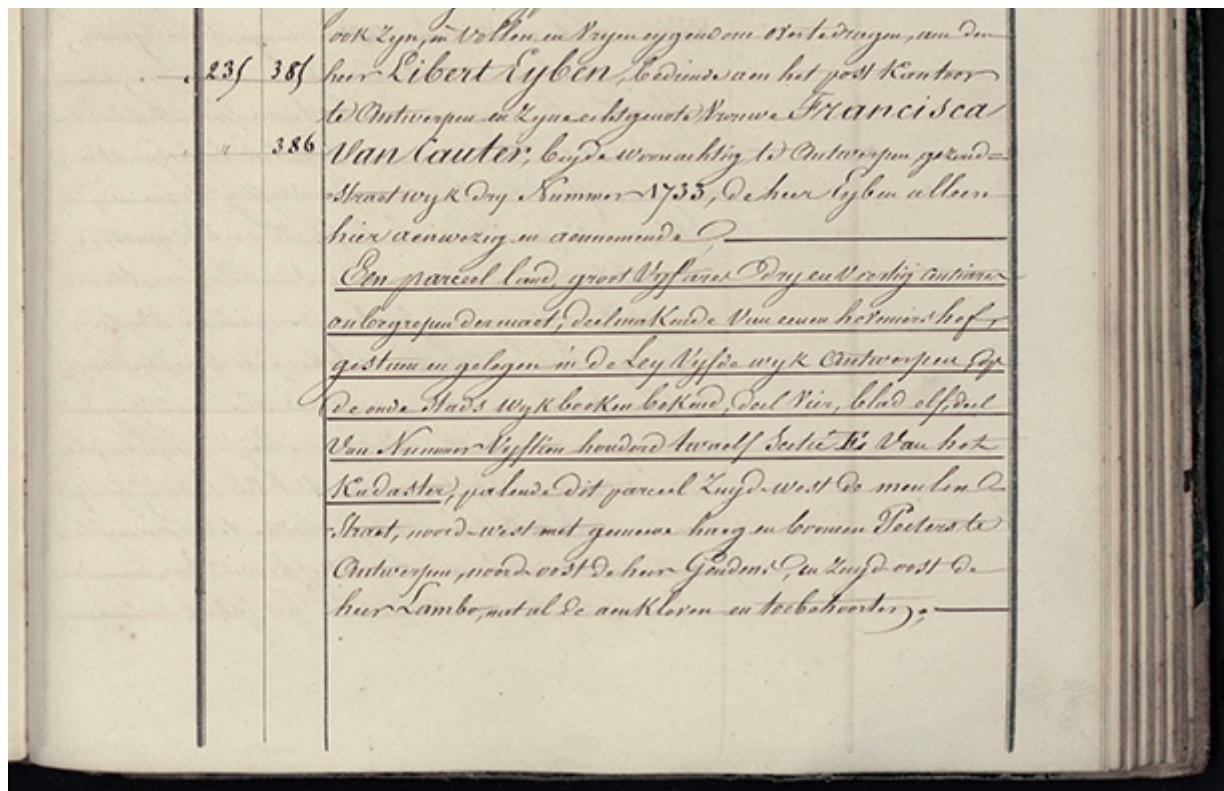 ook zyn, in vollen en vryen eygendom over te dragen, aan den
235 385 heer Libert Eyben, bediende aen het post kantoor
te Antwerpen en zyne echtgenote Vrouwe Francisca
" 386 Van Cauter, beyde woonachtig te Antwerpen gezond=
straat wyk dry Nummer 1733, de heer Eyben alleen
hier aenwezig en aennemende,
Een parceel land, groot Vyf aren dry en veertig centiaren
onbegrepen der maet, deelmakende van eenen hoveniers hof,
gestaen en gelegen in de Ley Vyfde wyk Antwerpen op
de oude stads wykboeken bekend, deel vier, blad elf, deel
Van Nummer Vyftien honderd twaelf Sectie E, Van het
Kadaster, palende dit parceel Zuyd-west de meulen
straet, noord-west met gemeene haeg en boomen Peeters te
Antwerpen, noord-oost de heer Geudens, en Zuyd-oost de
heer Lambo, met al de aenkleven en toebehoorten.